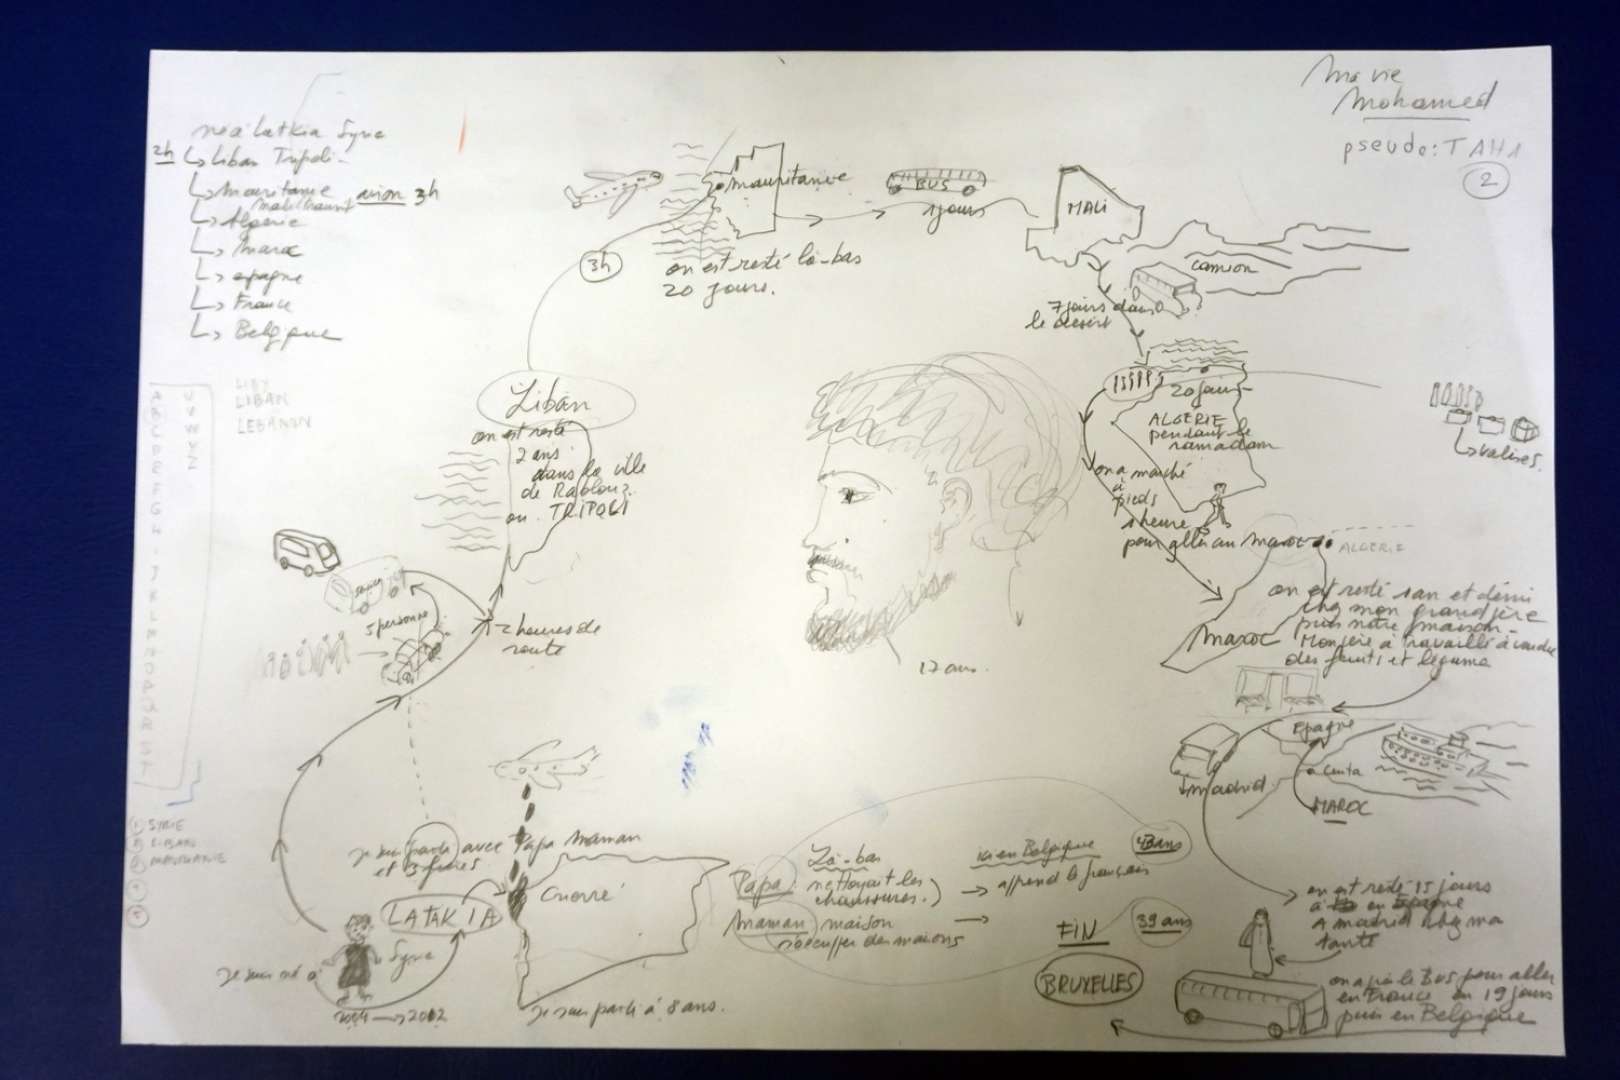 Ma vie
Mohamed
pseudo: TAHA
2
né à Latkia Syrie
2h
↳ Liban Tripoli
↳ Mauritanie avion 3h
↳ Algerie
↳ Maroc
↳ epagne
↳ France
↳ Belgique
LIBAN
LEBANON
SYRIE
LIBAN
MAURITANIE
je suis né à
LATAKIA
Syrie
2012
je suis parti avec Papa Maman
et 3 frères
Guerre
je suis parti à 8 ans.
5 personnes
2 heures de
route
Liban
on est resté
2 ans
dans la ville
de
ou TRIPOLI
3h
mauritanie
on est resté là-bas
20 jours.
BUS
1 jours
MALI
camion
7 jours dans
le desert
20 jours
ALGÉRIE
pendant le
ramadam
valises.
on a marché
à
pieds
1 heure
pour aller au maroc
ALGERIE
Maroc
on est resté 1 an et demi
chez mon grand père
puis notre maison
Mon père à travaillé à vendre
des fruits et légume
Epagne
à ceuta
MAROC
madrid
on est resté 15 jours
à en Espagne
A madrid chez ma
tante
on a pris le Bus pour aller
en France en 19 jours
puis en Belgique
17 ans.
Papa: Là-bas
nettoyait les
chaussures.
→ ici en Belgique
apprend le français
43 ans
Maman maison
→
39 ans
FIN
BRUXELLES